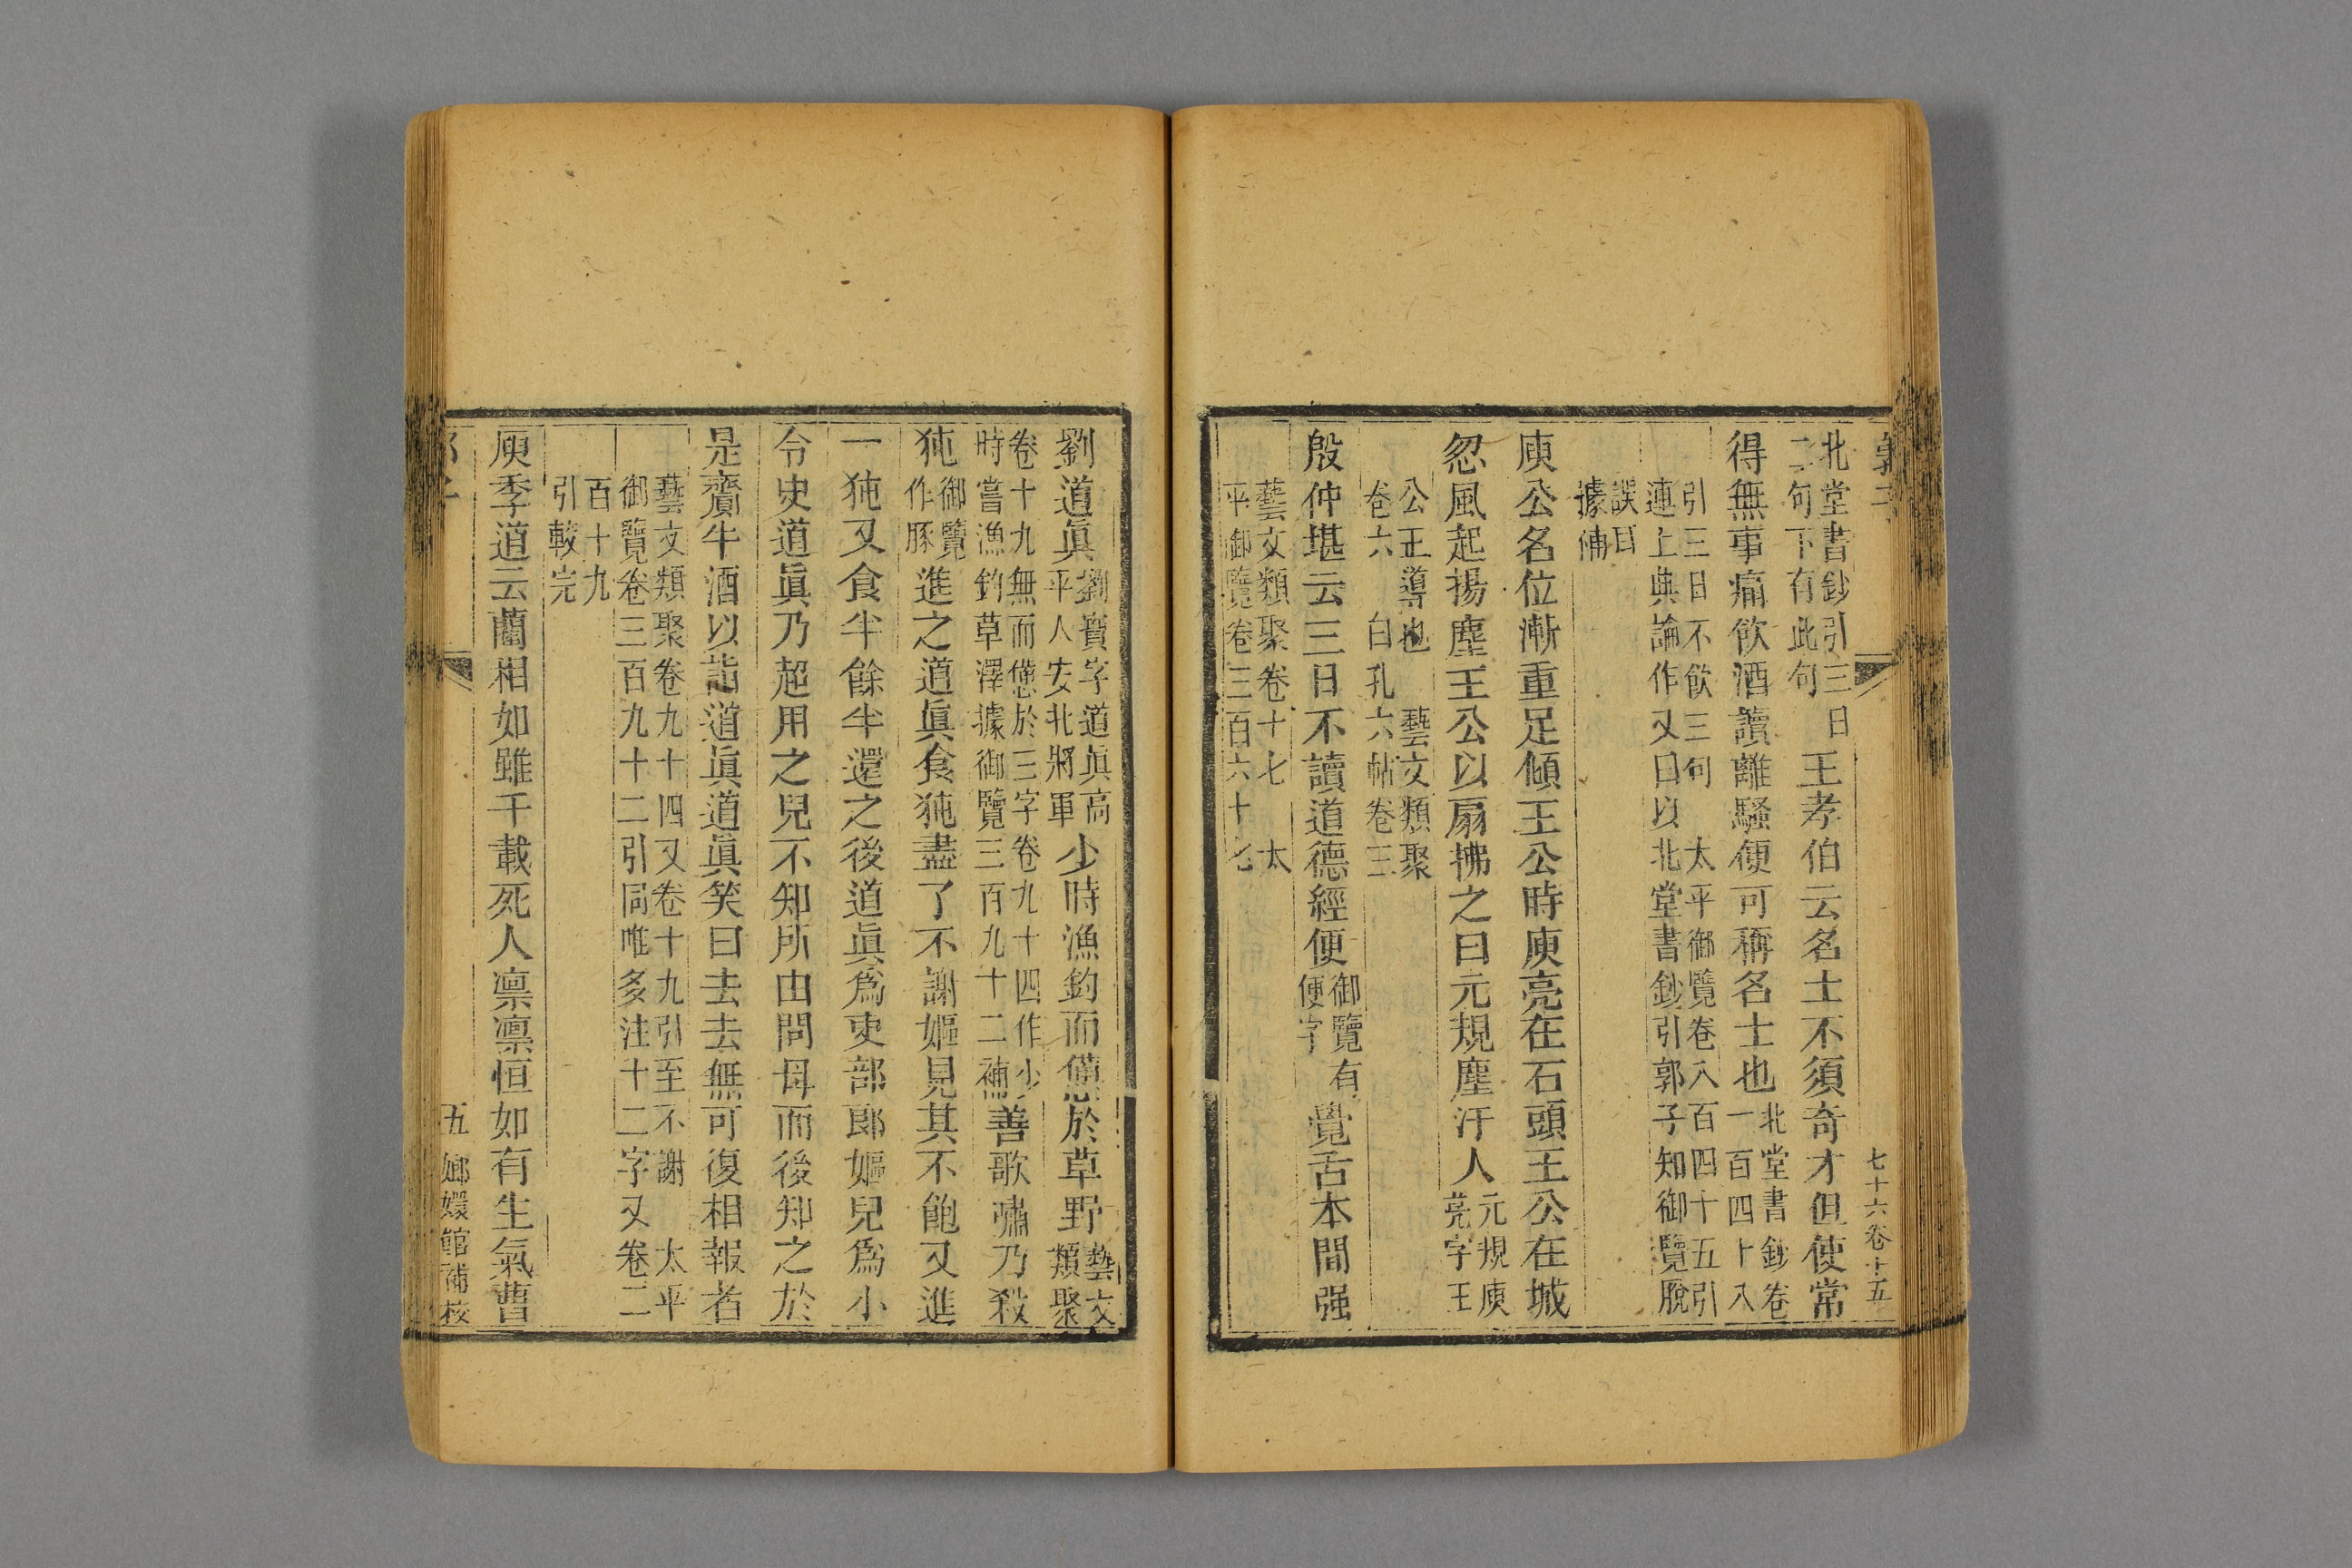 七十六卷十五
北堂書鈔引三日
二句下有此句
王孝伯云名士不須奇才但使常
得無事痛飲酒讀離騷便可稱名士也
北堂書鈔卷
一百四十八
引三日不飲三句 太平御覽卷八百四十五引
連上典論作又曰以北堂書鈔引郭子知御覽脫
誤耳
據補
庾公名位漸重足傾王公時庾亮在石頭王公在城
忽風起揚塵王公以扇拂之曰元規塵汙人
元規庾
亮字王
公王導也 藝文類聚
卷六 白孔六帖卷三
殷仲堪云三日不讀道德經便
御覽有
便字
覺舌本間强
藝文類聚卷十七 太
平御覽卷三百六十七
劉道眞
劉寶字道眞高
平人安北將軍
少時漁釣而憊於草野
藝文
類聚
卷十九無而憊於三字卷九十四作少
時嘗漁釣草澤據御覽三百九十二補
善歌嘯乃殺
㹠
御覽
作豚
進之道眞食㹠盡了不謝嫗見其不飽又進
一㹠又食半餘半還之後道眞爲吏部郎嫗兒爲小
令史道眞乃超用之兒不知所由問母而後知之於
是齎牛酒以詣道眞道眞笑曰去去無可復相報者
藝文類聚卷九十四又卷十九引至不謝 太平
御覽卷三百九十二引同唯多注十二字又卷二
百十九
引較完
庾季道云藺相如雖千載死人凛凛恒如有生氣曹
五
嫏嬛館補校